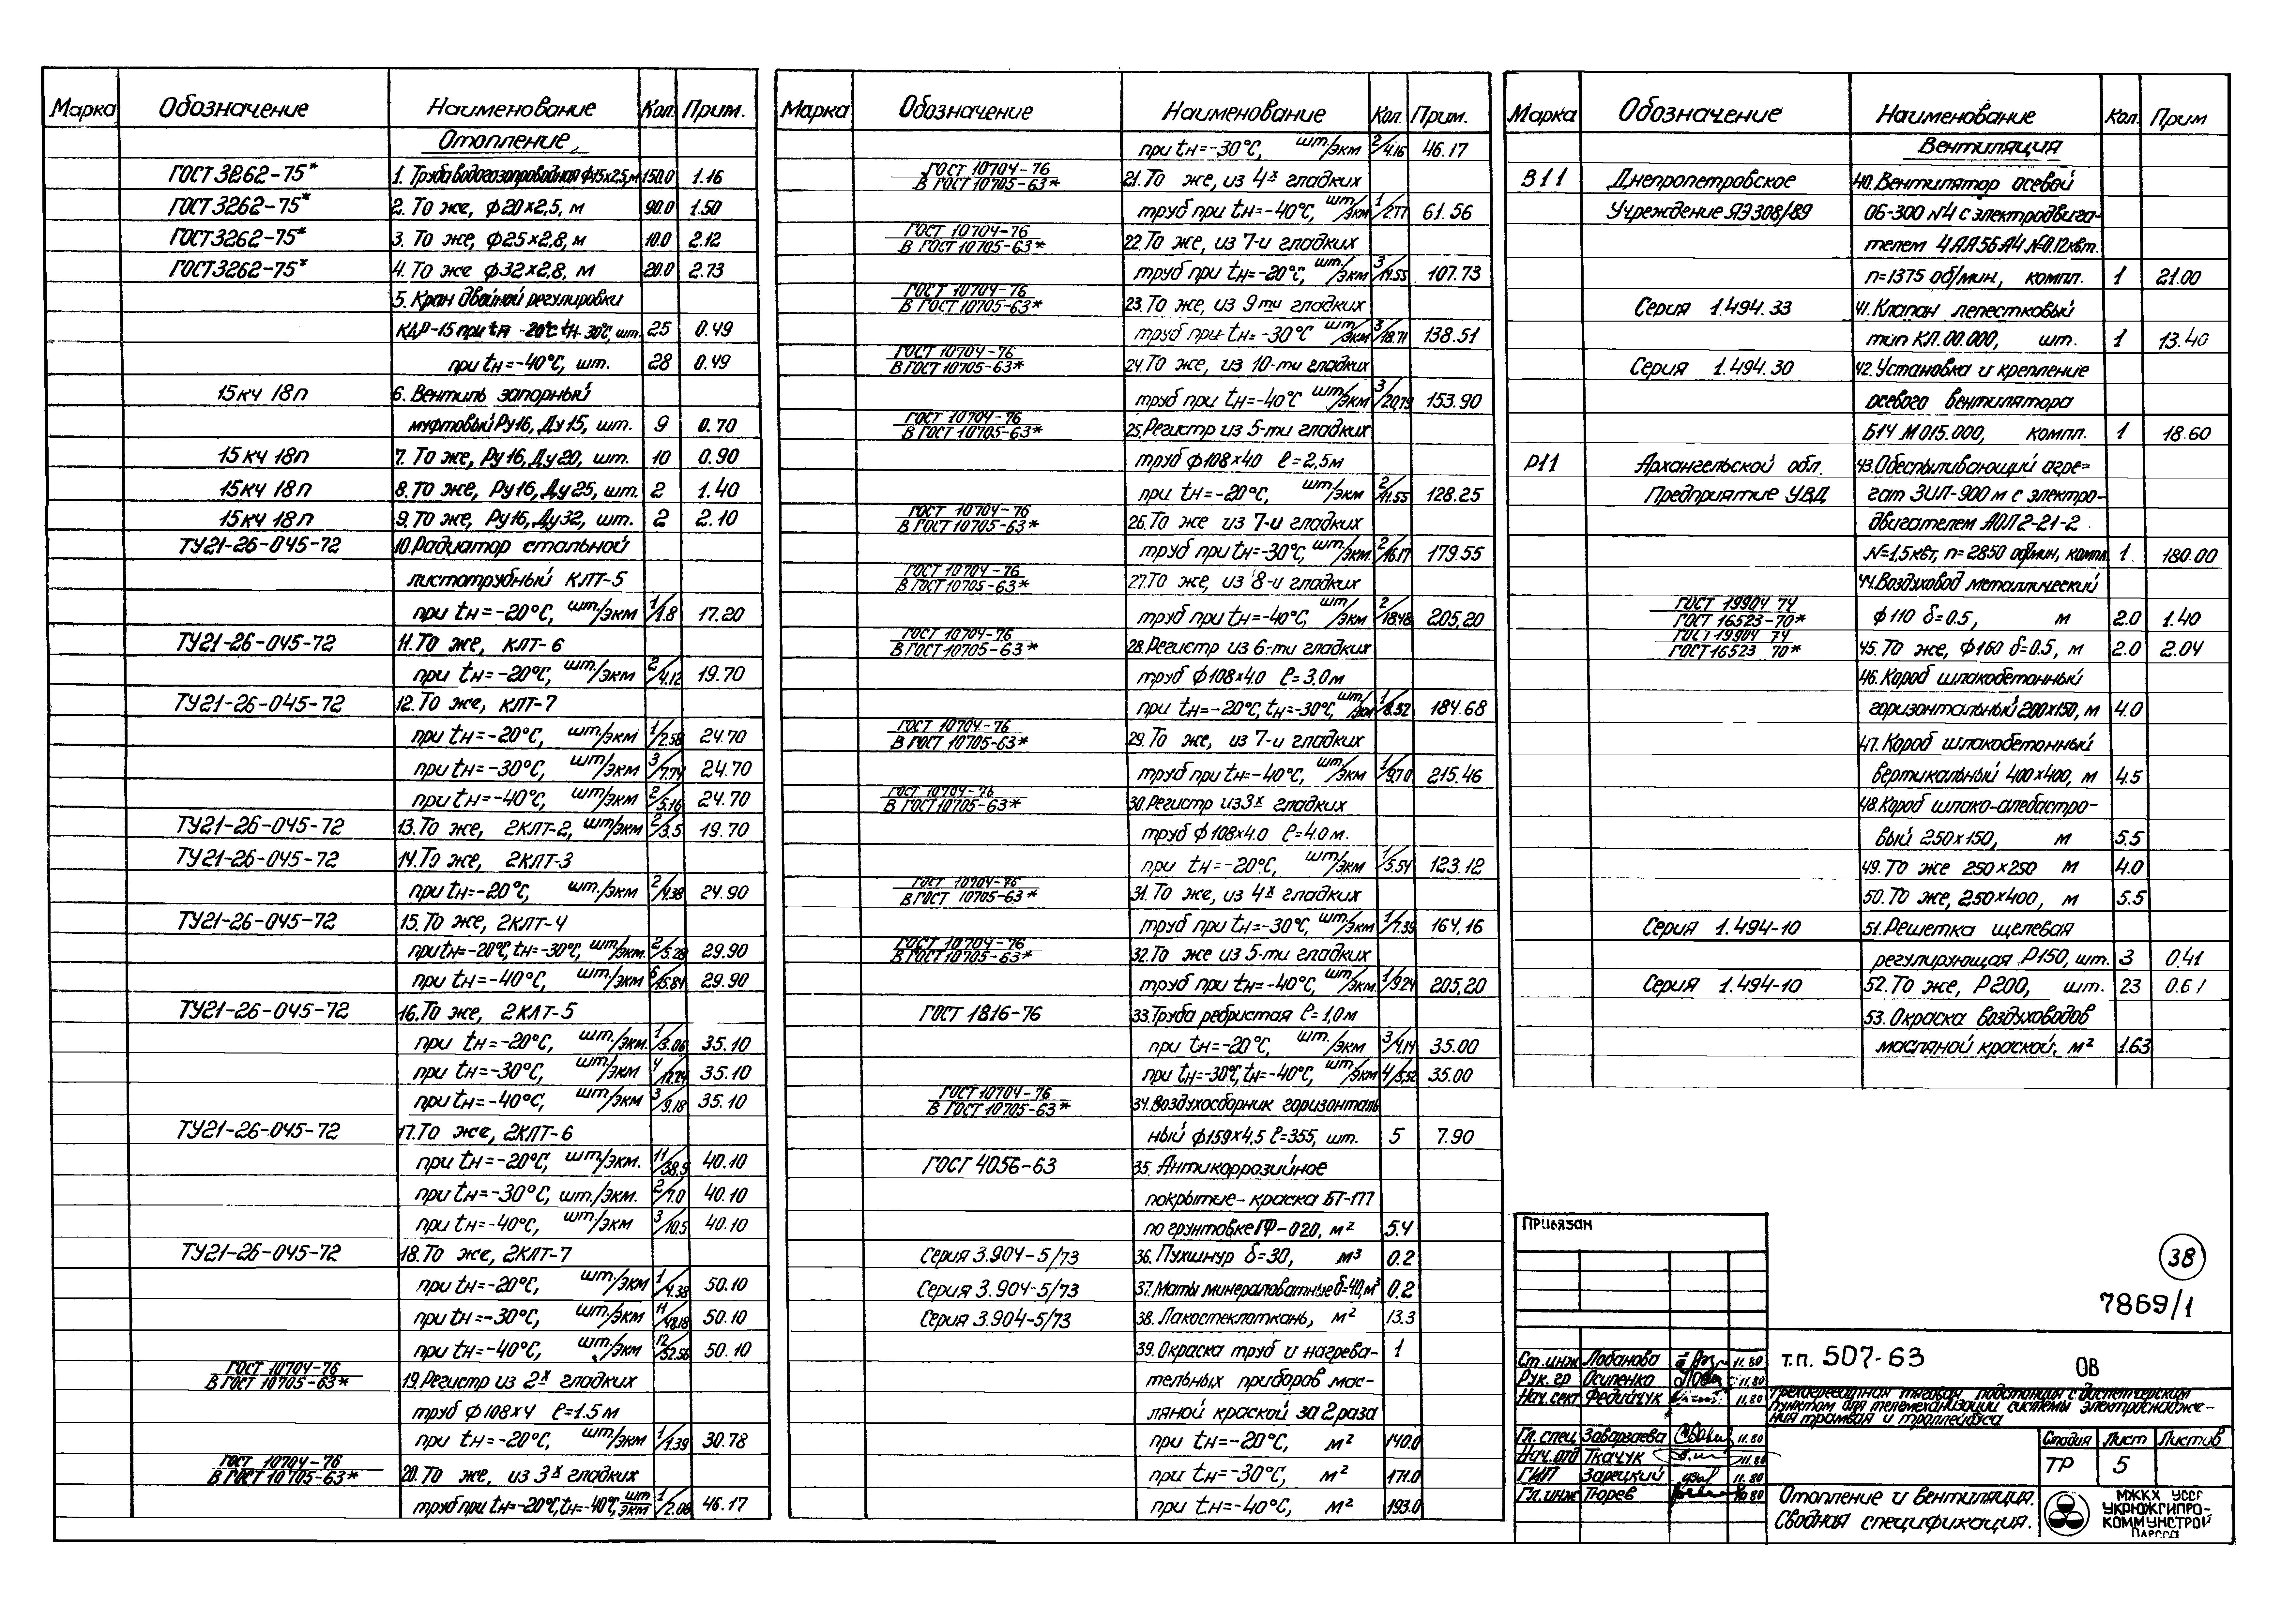 Марка Обозначение Наименование Кол. Прим.
Отопление,
ГОСТ 3262-75* 1. Труба водогазопроводная ф15х2,5, м 150.0 1.16
ГОСТ 3262-75* 2. То же, ф20х2,5, м 90.0 1.50
ГОСТ 3262-75* 3. То же, ф25х2,8, м 10.0 2.12
ГОСТ 3262-75* 4. То же ф32х2,8, м 20.0 2.73
5. Кран двойной регулировки
КДР-15 при tн -20°С tн-30°С, шт. 25 0.49
при tн=-40°С, шт. 28 0.49
15кч 18п 6. Вентиль запорный
муфтовый Ру16, Ду15, шт. 9 0.70
15кч 18п 7. То же, Ру16, Ду20, шт. 10 0.90
15кч 18п 8. То же, Ру16, Ду25, шт. 2 1.40
15кч 18п 9. То же, Ру16, Ду32, шт. 2 2.10
ТУ21-26-045-72 10. Радиатор стальной
листотрубный КЛТ-5
при tн=-20°С, шт./экм 1/1.8 17.20
ТУ21-26-045-72 11. То же, КЛТ-6
при tн=-20°С, шт./экм 2/4.12 19.70
ТУ21-26-045-72 12. То же, КЛТ-7
при tн=-20°С, шт/экм 1/2.58 24.70
при tн=-30°С, шт/экм 3/7.74 24.70
при tн=-40°С, шт/экм 2/5.16 24.70
ТУ21-26-045-72 13. То же, 2КЛТ-2, шт/экм 2/3.5 19.70
ТУ21-26-045-72 14. То же, 2КЛТ-3
при tн=-20°С, шт./экм 2/4.38 24.90
ТУ21-26-045-72 15. То же, 2КЛТ-4
при tн=-20°С, tн=-30°С, шт/экм. 2/5.28 29.90
при tн=-40°С, шт./экм 6/15.84 29.90
ТУ21-26-045-72 16. То же, 2КЛТ-5
при tн=-20°С, шт./экм. 1/3.06 35.10
при tн=-30°С, шт/экм 4/12.24 35.10
при tн=-40°С, шт/экм 3/9.18 35.10
ТУ21-26-045-72 17. То же, 2КЛТ-6
при tн=-20°С, шт/экм. 11/38.5 40.10
при tн=-30°С, шт./экм. 2/7.0 40.10
при tн=-40°С, шт/экм 3/10.5 40.10
ТУ21-26-045-72 18. То же, 2КЛТ-7
при tн=-20°С, шт/экм 1/4.38 50.10
при tн=-30°С, шт./экм 11/48.18 50.10
при tн=-40°С, шт/экм 12/52.56 50.10
ГОСТ 10704-76
В ГОСТ 10705-63* 19. Регистр из 2х гладких
труб ф108х4 ℓ=1.5м
при tн=-20°С, шт./экм 1/1.39 30.78
ГОСТ 10704-76
В ГОСТ 10705-63* 20. То же, из 3х гладких
труб при tн=-20°С, tн=-40°С, шт/экм 1/2.08 46.17
Марка Обозначение Наименование Кол. Прим.
при tн=-30°С, шт/экм 2/4.16 46.17
ГОСТ 10704-76
В ГОСТ 10705-63* 21. То же, из 4х гладких
труб при tн=-40°С, шт/экм 1/2.77 61.56
ГОСТ 10704-76
В ГОСТ 10705-63* 22. То же, из 7-и гладких
труб при tн=-20°С, шт./экм 3/14.55 107.73
ГОСТ 10704-76
В ГОСТ 10705-63* 23. То же, из 9ти гладких
труб при tн=-30°С шт/экм 3/18.71 138.51
ГОСТ 10704-76
В ГОСТ 10705-63* 24. То же, из 10-ти гладких
труб при tн=-40°С шт/экм 3/20,79 153.90
ГОСТ 10704-76
В ГОСТ 10705-63* 25. Регистр из 5-ти гладких
труб ф108х4.0 ℓ=2,5м
при tн=-20°С, шт/экм 2/11.55 128.25
ГОСТ 10704-76
В ГОСТ 10705-63* 26. То же из 7-и гладких
труб при tн=-30°С, шт/экм. 2/16.17 179.55
ГОСТ 10704-76
В ГОСТ 10705-63* 27. То же, из 8-и гладких
труб при tн=-40°С, шт/экм 2/18.48 205,20
ГОСТ 10704-76
В ГОСТ 10705-63* 28. Регистр из 6-ти гладких
труб ф108х4.0 ℓ=3.0м
при tн=-20°С, tн=-30°С, шт/экм 1/8.32 184.68
ГОСТ 10704-76
В ГОСТ 10705-63* 29. То же, из 7-и гладких
труб при tн=-40°С, шт/экм 1/9.70 215.46
ГОСТ 10704-76
В ГОСТ 10705-63* 30. Регистр из 3х гладких
труб ф108х4.0 ℓ=4.0м.
при tн=-20°С, шт/экм 1/5.54 123.12
ГОСТ 10704-76
В ГОСТ 10705-63* 31. То же, из 4х гладких
труб при tн=-30°С, шт/экм 1/7.39 164,16
ГОСТ 10704-76
В ГОСТ 10705-63* 32. То же из 5-ти гладких
труб при tн=-40°С, шт/экм. 1/9.24 205,20
ГОСТ 1816-76 33. Труба ребристая ℓ=1,0м
при tн=-20°С, шт/экм 3/4,14 35.00
при tн=-30°С, tн=-40°С, шт/экм 4/5,52 35.00
ГОСТ 10704-76
В ГОСТ 10705-63* 34. Воздухосборник горизонталь
ный ф159х4,5 ℓ=355, шт. 5 7.90
ГОСТ 4056-63 35. Антикоррозийное
покрытие-краска БТ-177
по грунтовке ГФ-020, м² 5.4
Серия 3.904-5/73 36. Пухшнур δ=30, м³ 0.2
Серия 3.904-5/73 37. Маты минераловатные δ=40, м³ 0.2
Серия 3.904-5/73 38. Лакостеклоткань, м² 13.3
39. Окраска труб и нагрева- 1
тельных приборов мас-
ляной краской за 2 раза
при tн=-20°С, м² 140.0
при tн=-30°С, м² 171.0
при tн=-40°С, м² 193.0
Марка Обозначение Наименование Кол. Прим
Вентиляция
В11 Днепропетровское 40. Вентилятор осевой
Учреждение ЯЭ308/89 06-300 N4 с электродвига-
телем 4АА56А4 N=0.12квт.
n=1375 об/мин, компл. 1 21.00
Серия 1.494.33 41. Клапан лепестковый
тип КЛ.00.000, шт. 1 13.40
Серия 1.494.30 42. Установка и крепление
осевого вентилятора
Б14 М015.000, компл. 1 18.60
Р11 Архангельской обл. 43. Обеспыливающий агре-
Предприятие УВД гат ЗИЛ-900м с электро-
двигателем АОЛ2-21-2
N=1,5квт, n=2850 об/мин, компл. 1 180.00
44. Воздуховод металлический
ГОСТ 19904 74
ГОСТ 16523-70* ф110 δ=0.5, м 2.0 1.40
ГОСТ 19904 74
ГОСТ 16523 70* 45. То же, ф160 δ=0.5, м 2.0 2.04
46. Короб шлакобетонный
горизонтальный 200х150, м 4.0
47. Короб шлакобетонный
вертикальный 400х400, м 4.5
48. Короб шлако-алебастро-
вый 250х150, м 5.5
49. То же 250х250 м 4.0
50. То же, 250х400, м 5.5
Серия 1.494-10 51. Решетка щелевая
регулирующая Р150, шт. 3 0.41
Серия 1.494-10 52. То же, Р200, шт. 23 0.61
53. Окраска воздуховодов
масляной краской, м² 1.63
Привязан
38
7869/1
Ст. инж Лобанова 11.80
Рук. гр Осипенко 11.80
Нач. сект Федийчук 11.80
Гл. спец Заварзаева 11.80
Нач. отд Ткачук 11.80
ГИП Зарецкий 11.80
Гл. инж Тюрев 10.80
т.п. 507-63 ОВ
Трехагрегатная тяговая подстанция с диспетчерским
пунктом для телемеханизации системы электроснабже-
ния трамвая и троллейбуса
Стадия Лист Листов
ТР 5
Отопление и вентиляция.
Сводная спецификация.
МЖКХ УССР
УКРЮЖГИПРО-
КОММУНСТРОЙ
Одесса